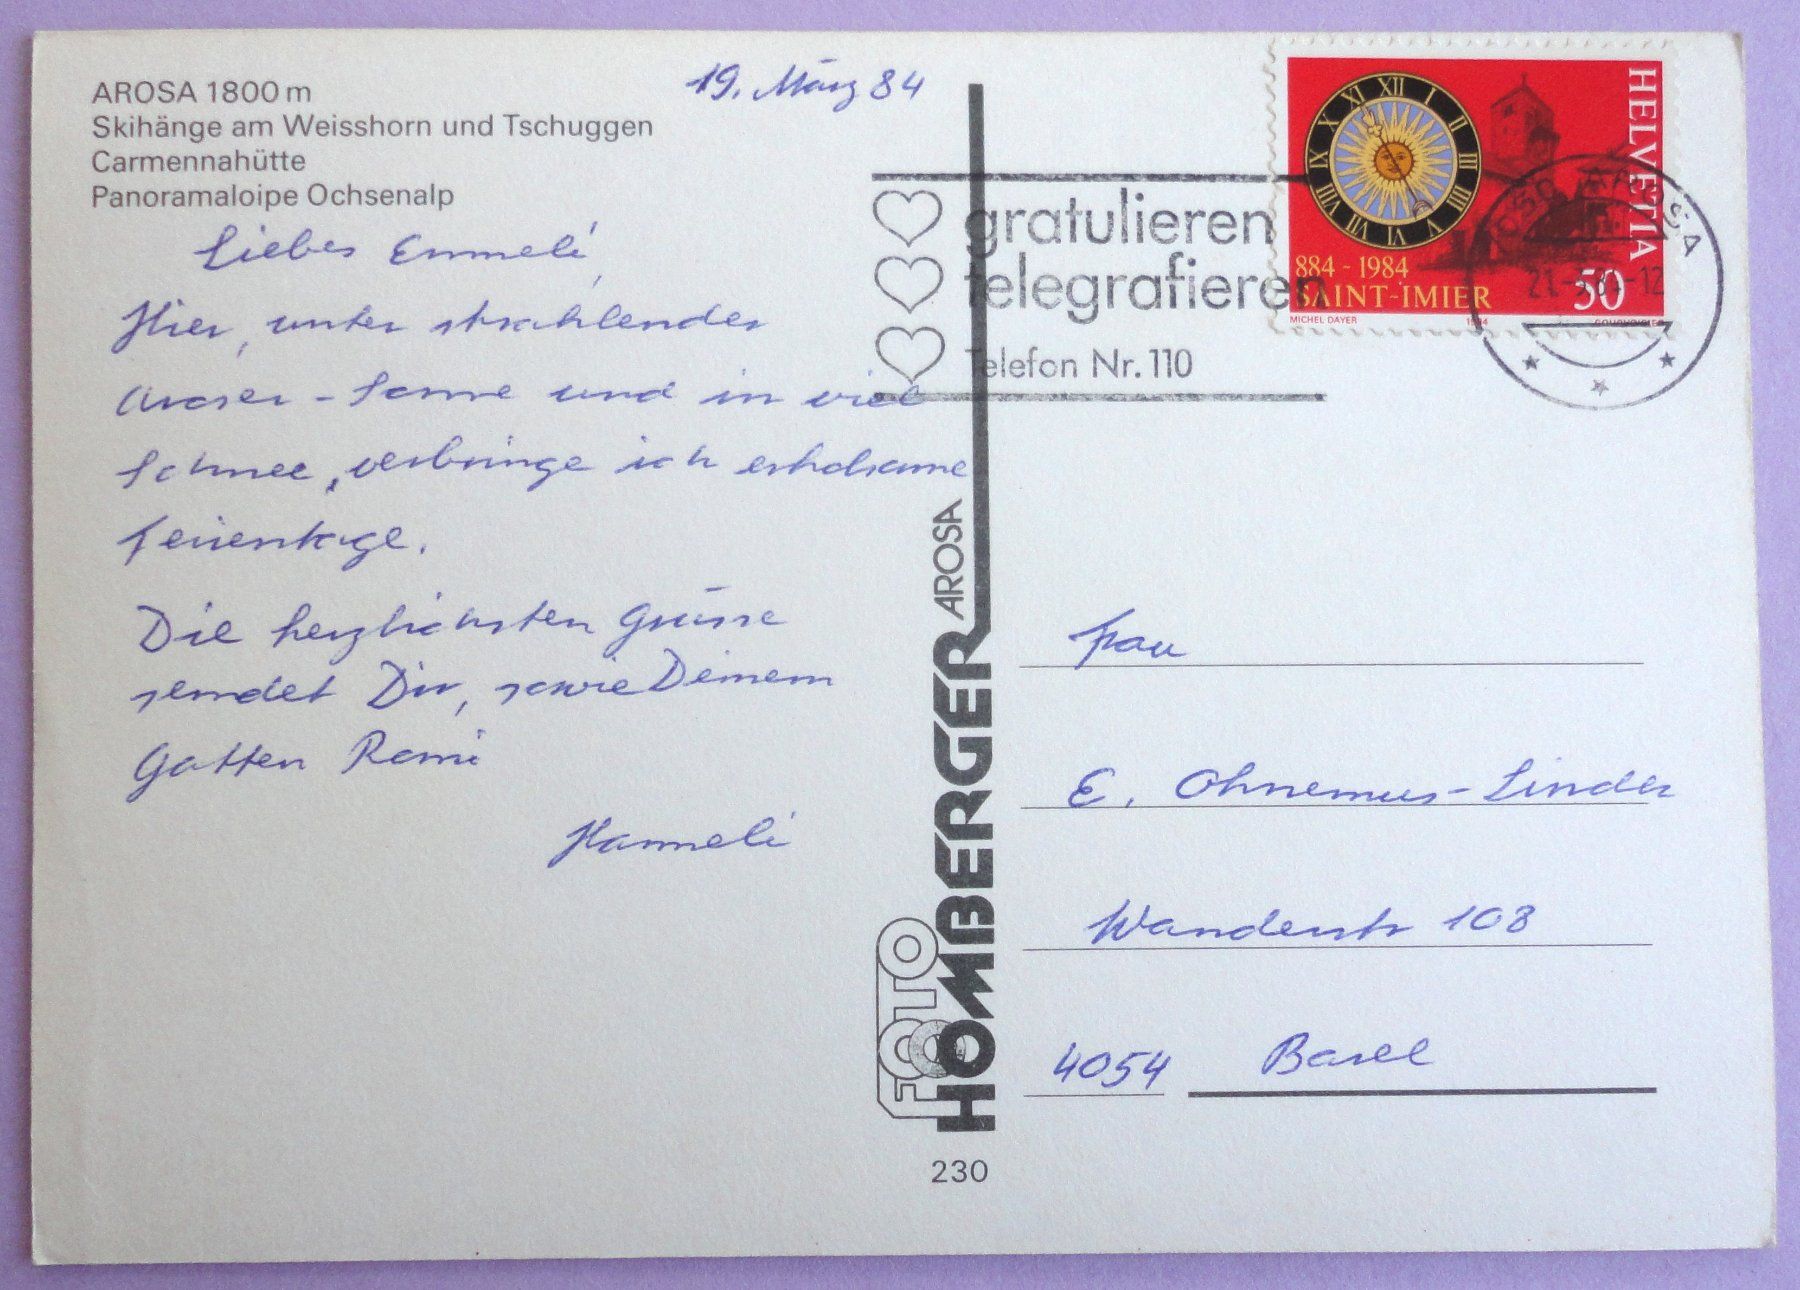 AROSA 1800 m
Skihänge am Weisshorn und Tschuggen
Carmennahütte
Panoramaloipe Ochsenalp
19. März 84
Liebes Emmeli,
Hier, unter strahlender
Aroser-Sonne und in viel
Schnee, verbringe ich erholsame
Ferientage.
Die herzlichsten Grüsse
sendet Dir, sowie Deinem
Gatten Remi
Hanneli
gratulieren
telegrafieren
Telefon Nr. 110
HELVETIA
XII I II III IIII V VI VII VIII IX X XI
884 - 1984
SAINT-IMIER
50
MICHEL DAYER
1984
COURVOISIER
AROSA
FOTO
HOMBERGER AROSA
230
Frau
E. Ohnemus-Linder
Wanderstr 108
4054 Basel